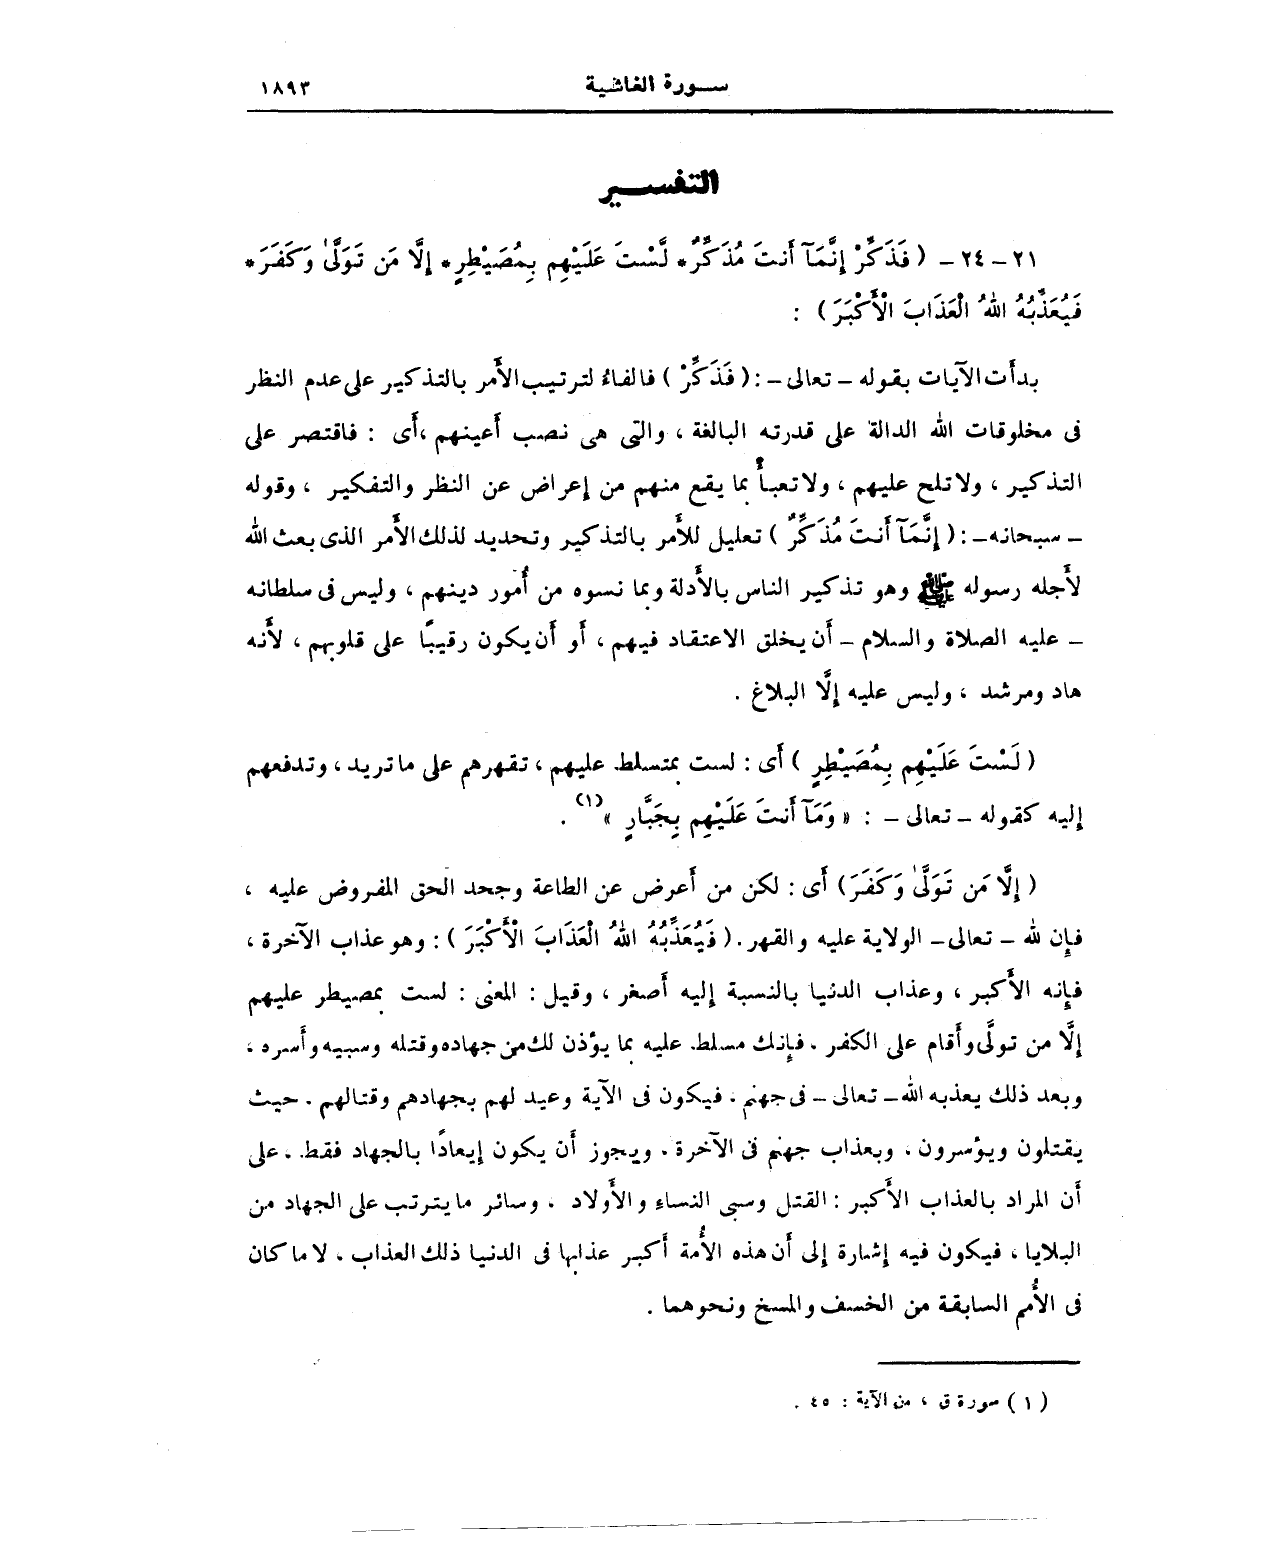 سورة الغاشية ١٨٩٣
التفسير
٢١ - ٢٤ - ( فَذَكِّرْ إِنَّمَآ أَنتَ مُذَكِّرٌ * لَّسْتَ عَلَيْهِم بِمُصَيْطِرٍ * إِلَّا مَن تَوَلَّىٰ وَكَفَرَ *
فَيُعَذِّبُهُ اللهُ الْعَذَابَ الْأَكْبَرَ ) :
بدأت الآيات بقوله - تعالى - : ( فَذَكِّرْ ) فالفاءُ لترتيب الأَمر بالتذكير على عدم النظر
فى مخلوقات الله الدالة على قدرته البالغة ، والتى هى نصب أعينهم ، أَى : فاقتصر على
التذكير ، ولا تلح عليهم ، ولا تعبأْ بما يقع منهم من إعراض عن النظر والتفكير ، وقوله
- سبحانه - : ( إِنَّمَآ أَنتَ مُذَكِّرٌ ) تعليل للأَمر بالتذكير وتحديد لذلك الأَمر الذى بعث الله
لأَجله رسوله ﷺ وهو تذكير الناس بالأَدلة وبما نسوه من أُمور دينهم ، وليس فى سلطانه
- عليه الصلاة والسلام - أَن يخلق الاعتقاد فيهم ، أَو أَن يكون رقيبًا على قلوبهم ، لأَنه
هاد ومرشد ، وليس عليه إِلَّا البلاغ .
( لَسْتَ عَلَيْهِم بِمُصَيْطِرٍ ) أَى : لست بمتسلط عليهم ، تقهرهم على ما تريد ، وتدفعهم
إليه كقوله - تعالى - : « وَمَآ أَنتَ عَلَيْهِم بِجَبَّارٍ » (١) .
( إِلَّا مَن تَوَلَّىٰ وَكَفَرَ ) أَى : لكن من أَعرض عن الطاعة وجحد الحق المفروض عليه ،
فإِن لله - تعالى - الولاية عليه والقهر . ( فَيُعَذِّبُهُ اللهُ الْعَذَابَ الْأَكْبَرَ ) : وهو عذاب الآخرة ،
فإِنه الأَكبر ، وعذاب الدنيا بالنسبة إليه أَصغر ، وقيل : المعنى : لست بمصيطر عليهم
إِلَّا من تولَّى وأَقام على الكفر . فإِنك مسلط عليه بما يؤذن لك من جهاده وقتله وسبيه وأَسره ،
وبعد ذلك يعذبه الله - تعالى - فى جهنم ، فيكون فى الآية وعيد لهم بجهادهم وقتالهم . حيث
يقتلون ويؤسرون ، وبعذاب جهنم فى الآخرة . ويجوز أَن يكون إِيعادًا بالجهاد فقط . على
أَن المراد بالعذاب الأَكبر : القتل وسبى النساء والأَولاد ، وسائر ما يترتب على الجهاد من
البلايا ، فيكون فيه إِشارة إِلى أَن هذه الأُمة أَكبر عذابها فى الدنيا ذلك العذاب ، لا ما كان
فى الأُمم السابقة من الخسف والمسخ ونحوهما .
(١) سورة ق ، من الآية : ٤٥ .